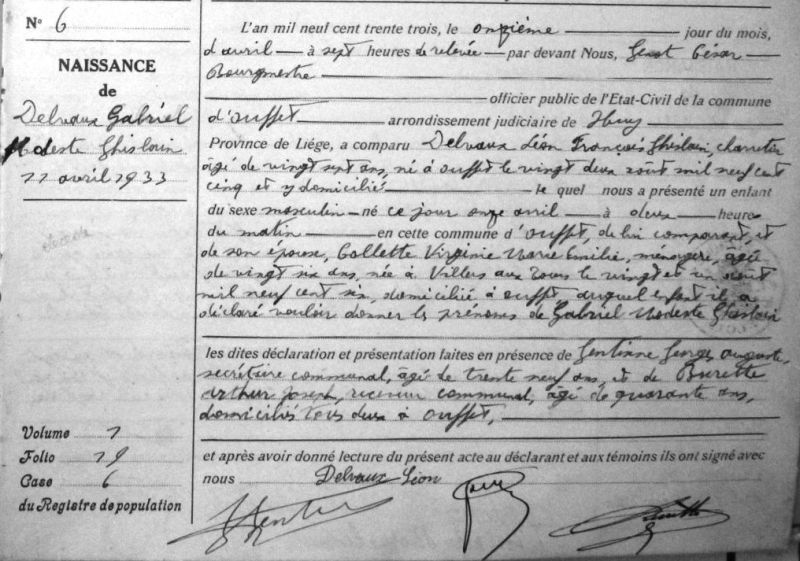 N° 6
NAISSANCE
de
Delvaux Gabriel
Modeste Ghislain
11 avril 1933
Volume 1
Folio 19
Case 6
du Registre de population
L'an mil neuf cent trente trois, le onzième jour du mois,
d'avril à sept heures de relevée par devant Nous, Genot César
Bourgmestre
officier public de l'Etat-Civil de la commune
d'Ouffet arrondissement judiciaire de Huy
Province de Liége, a comparu Delvaux Léon François Ghislain, charretier
âgé de vingt sept ans, né à Ouffet le vingt deux août mil neuf cent
cinq et y domicilié le quel nous a présenté un enfant
du sexe masculin né ce jour onze avril à deux heures
du matin en cette commune d'Ouffet, de lui comparant, et
de son épouse, Collette Virginie Marie Emilie, ménagère, âgée
de vingt six ans, née à Villers aux Tours le vingt et un août
mil neuf cent six, domiciliée à Ouffet auquel enfant il a
déclaré vouloir donner les prénoms de Gabriel Modeste Ghislain
les dites déclaration et présentation faites en présence de Georges Auguste,
secrétaire communal, âgé de trente neuf ans, et de Burette
Arthur Joseph, receveur communal, âgé de quarante ans,
domiciliés tous deux à Ouffet,
et après avoir donné lecture du présent acte au déclarant et aux témoins ils ont signé avec
nous Delvaux Léon